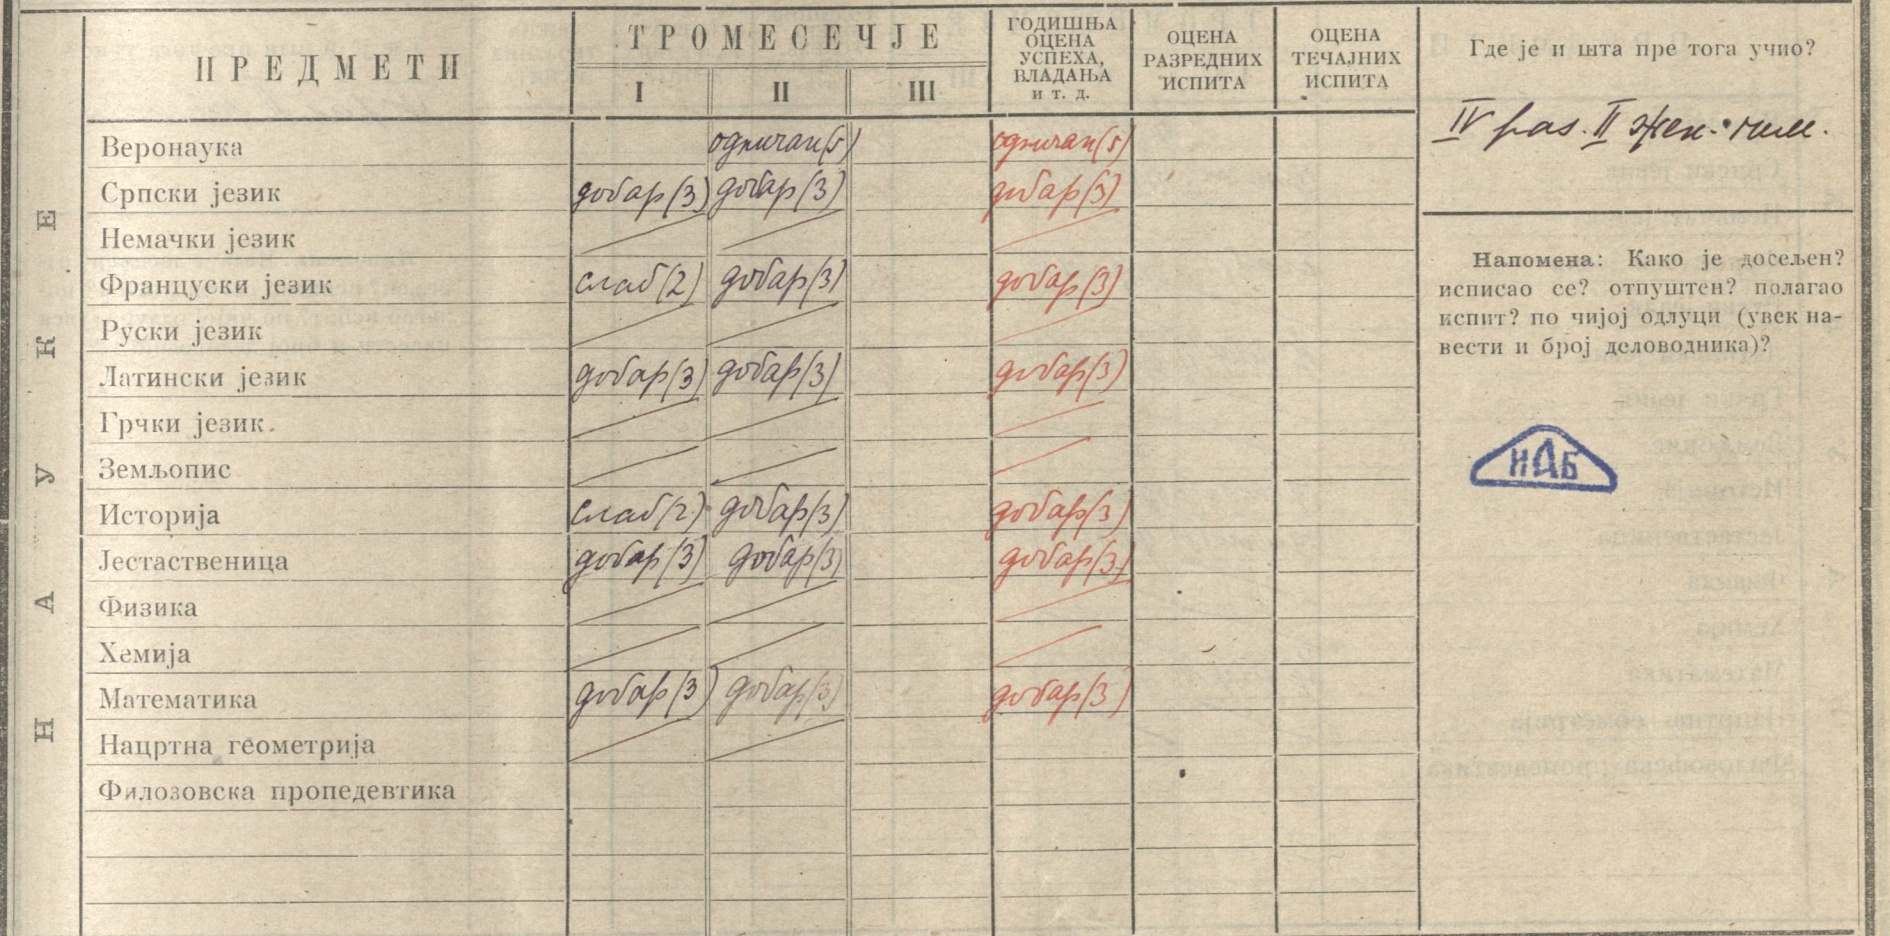 НАУКЕ
ПРЕДМЕТИ
ТРОМЕСЕЧЈЕ
I II III
ГОДИШЊА
ОЦЕНА
УСПЕХА,
ВЛАДАЊА
и т. д.
ОЦЕНА
РАЗРЕДНИХ
ИСПИТА
ОЦЕНА
ТЕЧАЈНИХ
ИСПИТА
Веронаука одличан(5) одличан(5)
Српски језик добар(3) добар(3) добар(3)
Немачки језик
Француски језик слаб(2) добар(3) добар(3)
Руски језик
Латински језик добар(3) добар(3) добар(3)
Грчки језик
Земљопис
Историја слаб(2) добар(3) добар(3)
Јестаственица добар(3) добар(3) добар(3)
Физика
Хемија
Математика добар(3) добар(3) добар(3)
Нацртна геометрија
Филозовска пропедевтика
Где је и шта пре тога учио?
IV раз. II жен. гим.
Напомена: Како је досељен?
исписао се? отпуштен? полагао
испит? по чијој одлуци (увек на-
вести и број деловодника)?
ИАБ